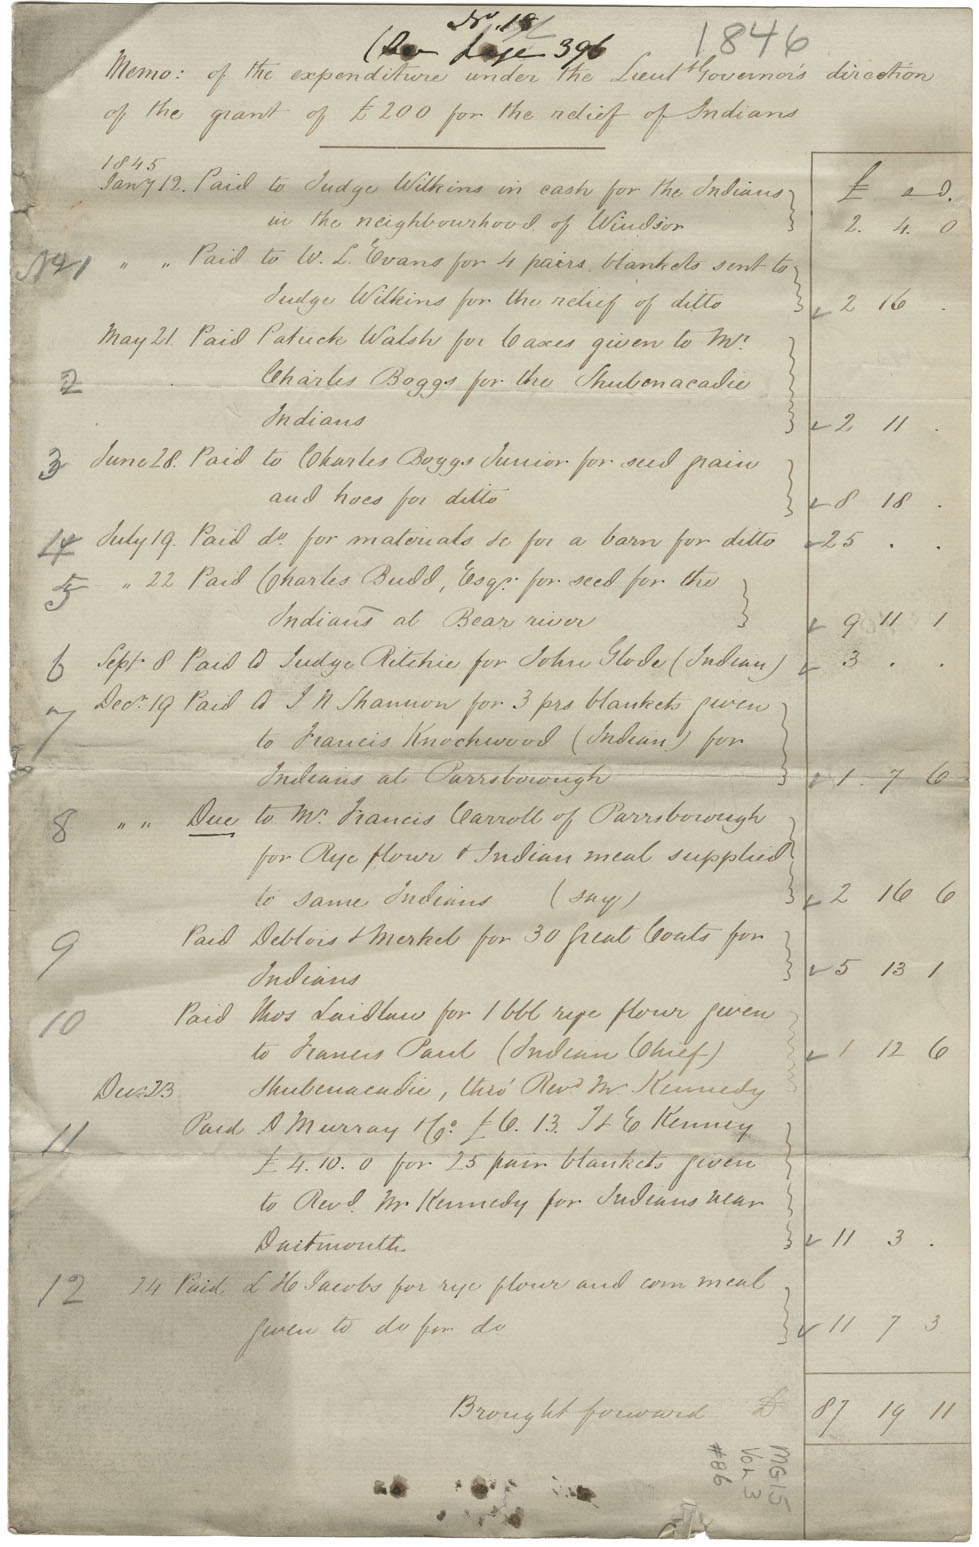 No. 18
(See page 396
1846
Memo: of the expenditure under the Lieut Governor's direction
of the grant of £200 for the relief of Indians
1845
£ s D.
Jany 12. Paid to Judge Wilkins in cash for the Indians
in the neighbourhood of Windsor 2. 4. 0
No 1 " " Paid to W. L. Evans for 4 pairs blankets sent to
Judge Wilkins for the relief of ditto 2 16 .
May 21. Paid Patrick Walsh for axes given to Mr.
2 Charles Boggs for the Shubenacadie
Indians 2 11 .
3 June 28. Paid to Charles Boggs Junior for seed grain
and hoes for ditto 8 18 .
4 July 19. Paid do. for materials &c for a barn for ditto 25 . .
5 " 22 Paid Charles Budd, Esqr. for seed for the
Indians at Bear river 9 11 1
6 Sept. 8 Paid Judge Ritchie for John Glode (Indian) 3 . .
7 Decr. 19 Paid J N Shannon for 3 prs blankets given
to Francis Knockwood (Indian) for
Indians at Parrsborough 1 7 6
8 " " Due to Mr. Francis Carroll of Parrsborough
for Rye flour & Indian meal supplied
to same Indians (say) 2 16 6
9 Paid Deblois & Merkel for 30 Great Coats for
Indians 5 13 1
10 Paid Thos Laidlaw for 1 bbl rye flour given
to Francis Paul (Indian Chief) 1 12 6
Dec. 23 Shubenacadie, thro' Revd Mr. Kennedy
11 Paid D Murray & Co. £6. 13. T & E Kenney
£4. 10. 0 for 25 pair blankets given
to Revd. Mr Kennedy for Indians near
Dartmouth 11 3 .
12 24 Paid L H Jacobs for rye flour and corn meal
given to do for do 11 7 3
Brought forward £ 87 19 11
MG15
Vol 3
#86